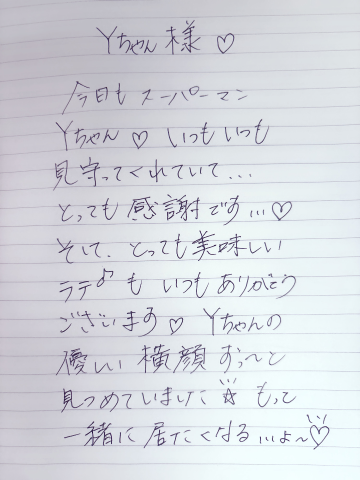 Yちゃん様♡
今日もスーパーマン
Yちゃん♡いつもいつも
見守ってくれていて...
とっても感謝です...♡
そして、とっても美味しい
ラテ♪もいつもありがとう
ございます♡Yちゃんの
優しい横顔ずっ〜と
見つめていました☆もっと
一緒に居たくなる...よ〜♡